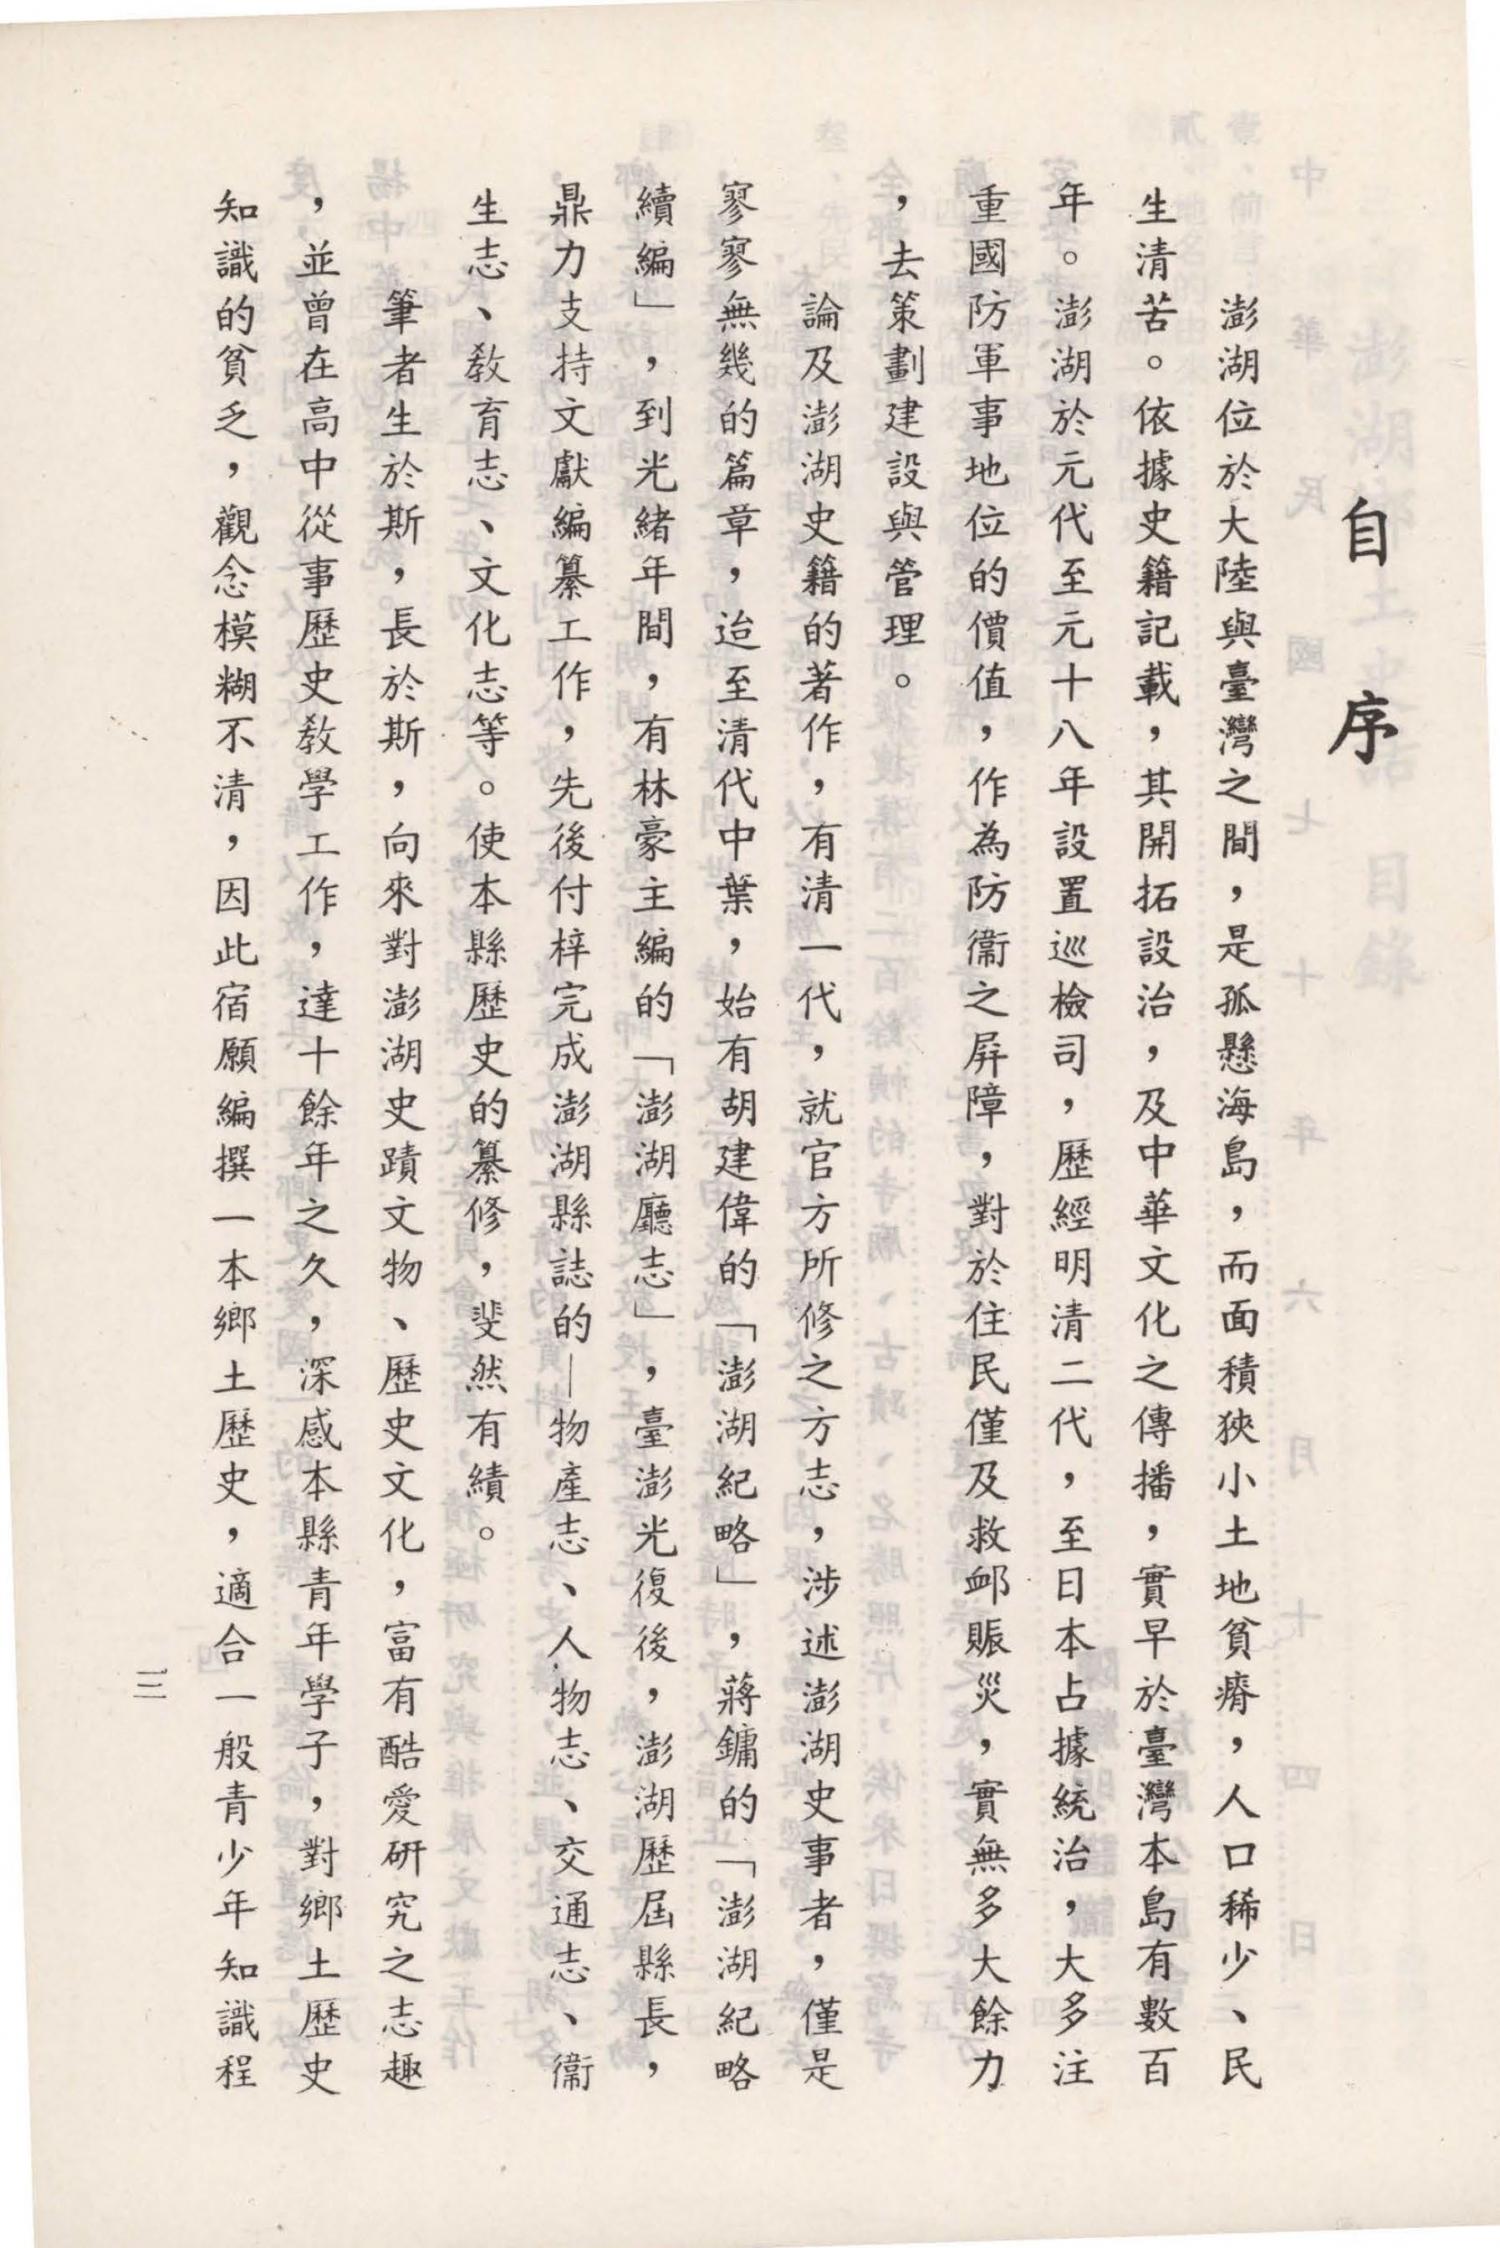 自序
澎湖位於大陸與臺灣之間，是孤懸海島，而面積狹小土地貧瘠，人口稀少、民
生清苦。依據史籍記載，其開拓設治，及中華文化之傳播，實早於臺灣本島有數百
年。澎湖於元代至元十八年設置巡檢司，歷經明清二代，至日本占據統治，大多注
重國防軍事地位的價值，作為防衞之屏障，對於住民僅及救卹賑災，實無多大餘力
，去策劃建設與管理。
論及澎湖史籍的著作，有清一代，就官方所修之方志，涉述澎湖史事者，僅是
寥寥無幾的篇章，迨至清代中葉，始有胡建偉的「澎湖紀略」，蔣鏞的「澎湖紀略
續編」，到光緒年間，有林豪主編的「澎湖廳志」，臺澎光復後，澎湖歷屆縣長，
鼎力支持文獻編纂工作，先後付梓完成澎湖縣誌的—物產志、人物志、交通志、衞
生志、敎育志、文化志等。使本縣歷史的纂修，斐然有績。
筆者生於斯，長於斯，向來對澎湖史蹟文物、歷史文化，富有酷愛研究之志趣
，並曾在高中從事歷史敎學工作，達十餘年之久，深感本縣青年學子，對鄉土歷史
知識的貧乏，觀念模糊不清，因此宿願編撰一本鄉土歷史，適合一般青少年知識程
三